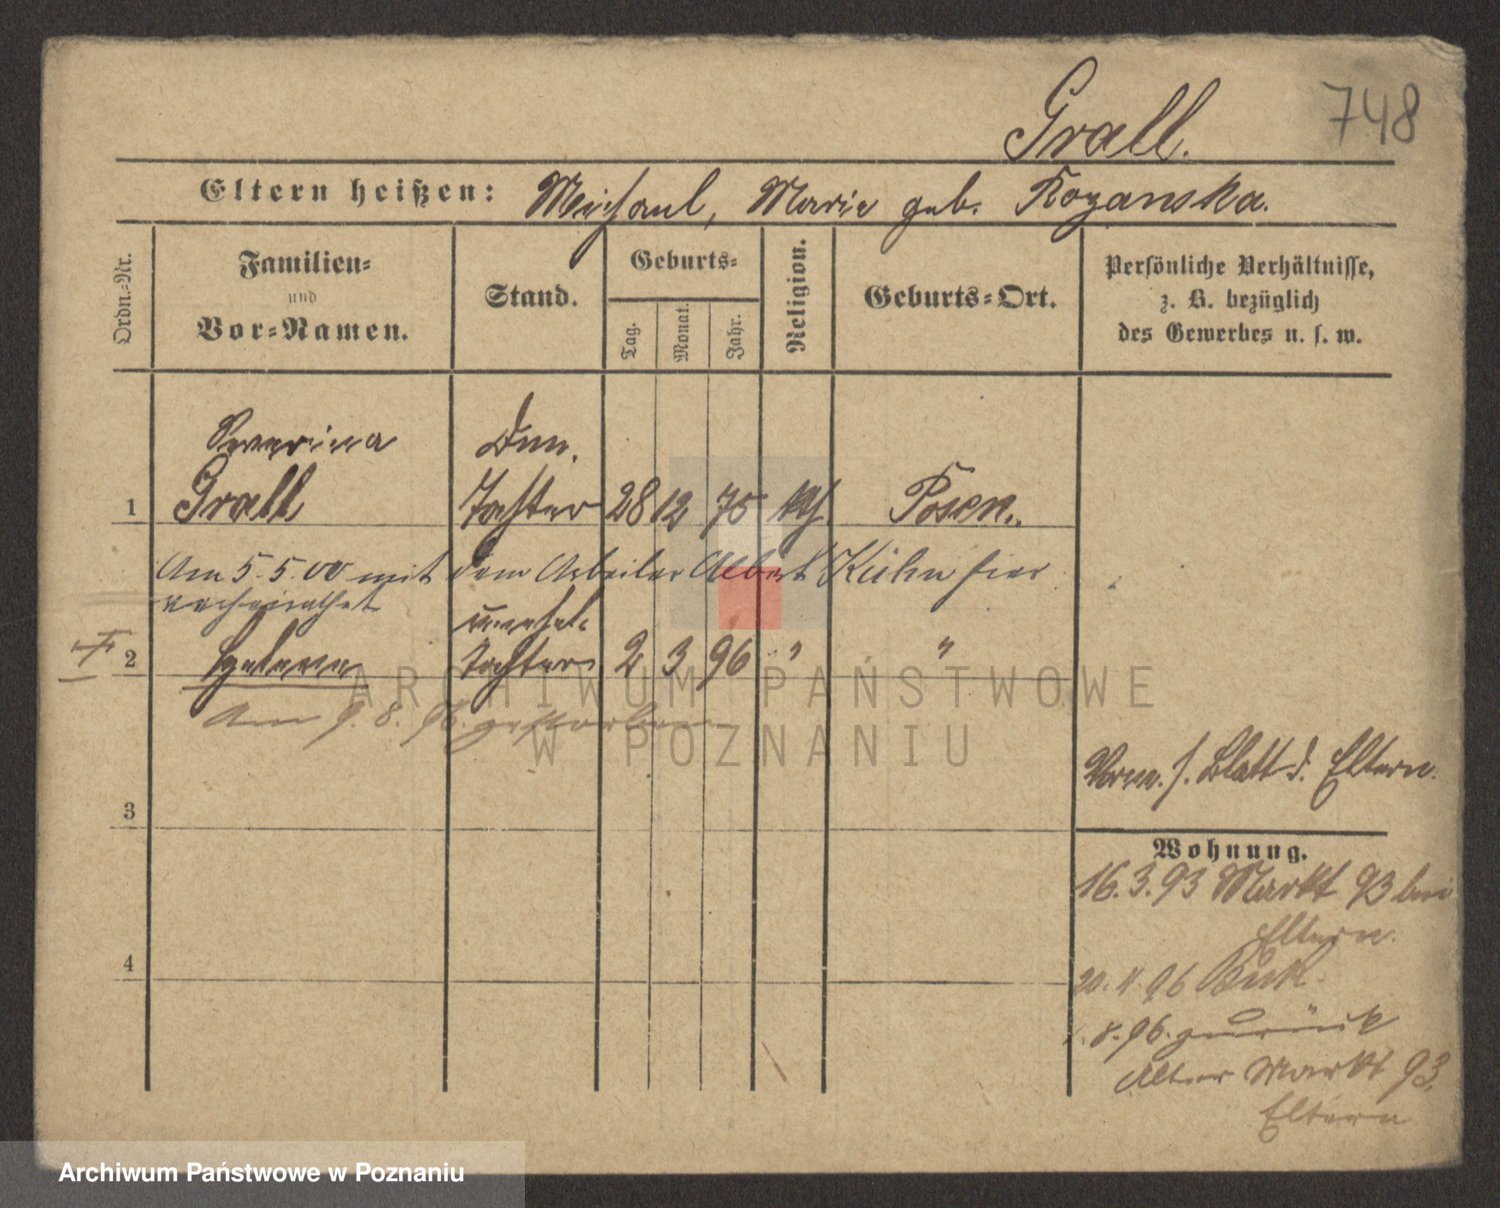 748
Grall.
Eltern heißen: Michael, Marie geb. Rozanska.
Ordn.-Nr.
Familien-
und
Vor-Namen.
Stand.
Geburts-
Tag.
Monat.
Jahr.
Religion.
Geburts-Ort.
Persönliche Verhältnisse,
z. B. bezüglich
des Gewerbes u. s. w.
Severina
1 Grall Tochter 28 12 75 kth. Posen.
Am 5.5.00 mit dem Arbeiter Albert Kühn hier
verheirathet
unehel.
2 Helene Tochter 2 3 96 " "
Am 9. 8. 96. gestorben
3
Verm. s. Blatt d. Eltern.
Wohnung.
16.3.93 Markt 93 bei
Eltern.
4
20. 4. 96 Buk.
8. 96. zurück
Alter Markt 93,
Eltern
ARCHIWUM PAŃSTWOWE
W POZNANIU
Archiwum Państwowe w Poznaniu